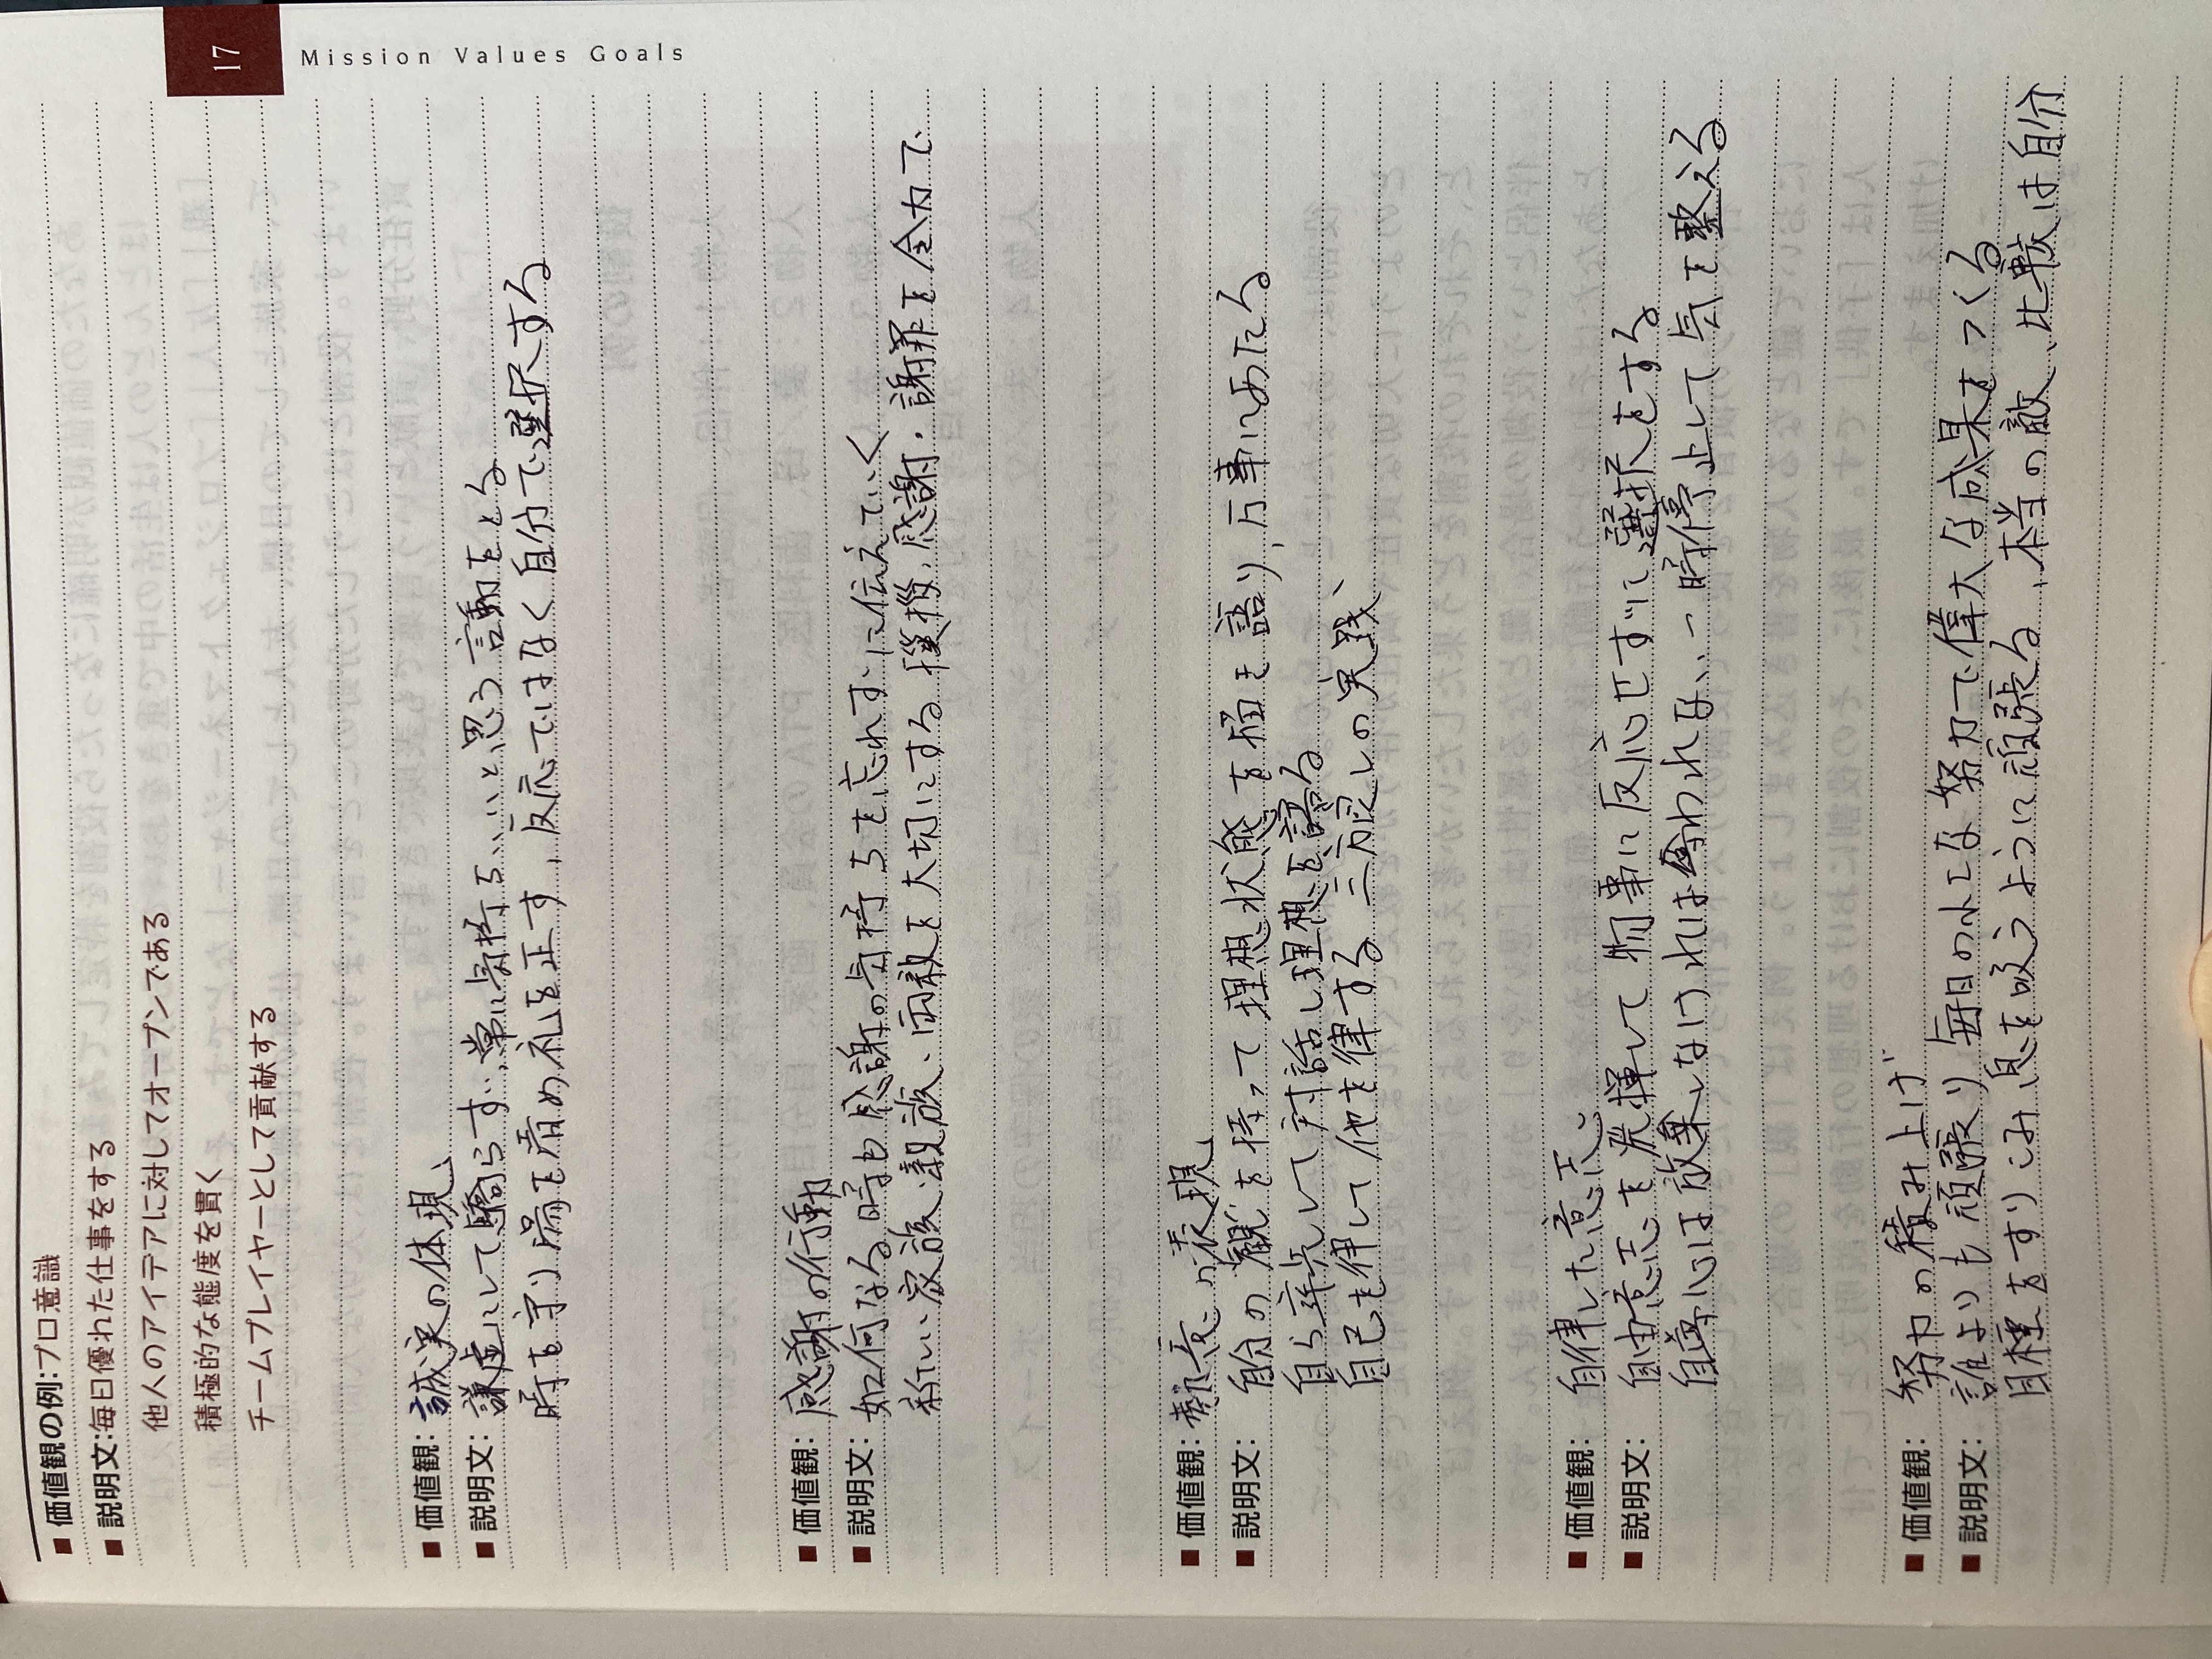 17 Mission Values Goals
■ 価値観の例:プロ意識
■ 説明文:毎日優れた仕事をする
他人のアイデアに対してオープンである
積極的な態度を貫く
チームプレイヤーとして貢献する
■ 価値観: 誠実の体現
■ 説明文: 謙虚にして驕らず、常に気持ちいいと思う言動をとる
時を守り場を清め礼を正す、反応ではなく自分で選択する
■ 価値観: 感謝の行動
■ 説明文: 如何なる時も感謝の気持ちを忘れずに伝えていく
新しい家族、親族、両親を大切にする 挨拶、感謝、謝罪を全力で
■ 価値観: の表現
■ 説明文: 自分の観を持って理想状態を描を語り、万事にあたる
自ら率先して対話し理想を語る
自己を律して他を律する 三方良しの実践
■ 価値観: 自律した意志
■ 説明文: 自由意志を発揮して物事に反応せずに選択をする
自尊心は放棄しなければ奪われない、一時停止して気を整える
■ 価値観: 努力の積み上げ
■ 説明文: 誰よりも頑張り 毎日の小さな努力で偉大な成果をつくる
目標をすりこみ 息を吸うように頑張る、本当の敵、比較は自分